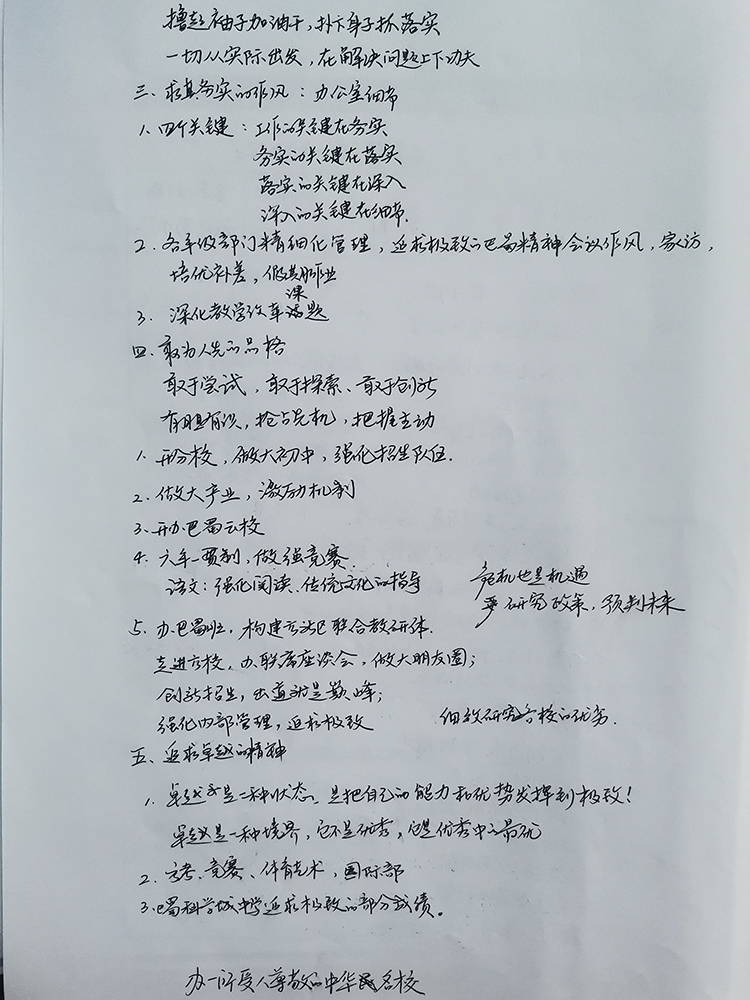 撸起袖子加油干，扑下身子抓落实
一切从实际出发，在解决问题上下功夫
三、求真务实的作风：办公室细节
1、四个关键：工作的关键在务实
务实的关键在落实
落实的关键在深入
深入的关键在细节.
2、各年级部门精细化管理，追求极致的巴蜀精神会议作风，家访，
培优补差，假期作业
课
3、深化教学改革课题
四、敢为人先的品格
敢于尝试，敢于探索、敢于创新
有胆有识，抢占先机，把握主动
1、开分校，做大初中，强化招生队伍.
2、做大产业，激励机制
3、开办巴蜀云校
4、六年一贯制，做强竞赛.
语文：强化阅读、传统文化的指导
危机也是机遇
要研究政策，预判未来
5、办巴蜀班，构建 联合教研体.
走进 校，办联席座谈会，做大朋友圈；
创新招生，出道就是巅峰；
强化内部管理，追求极致
细致研究各校的优劣.
五、追求卓越的精神
1、卓越是一种状态，是把自己的能力和优势发挥到极致！
卓越是一种境界，它不是优秀，它是优秀中之最优
2、高考、竞赛、体育艺术，国际部
3、巴蜀科学城中学追求极致的部分成绩。
办一所受人尊敬的中华名校